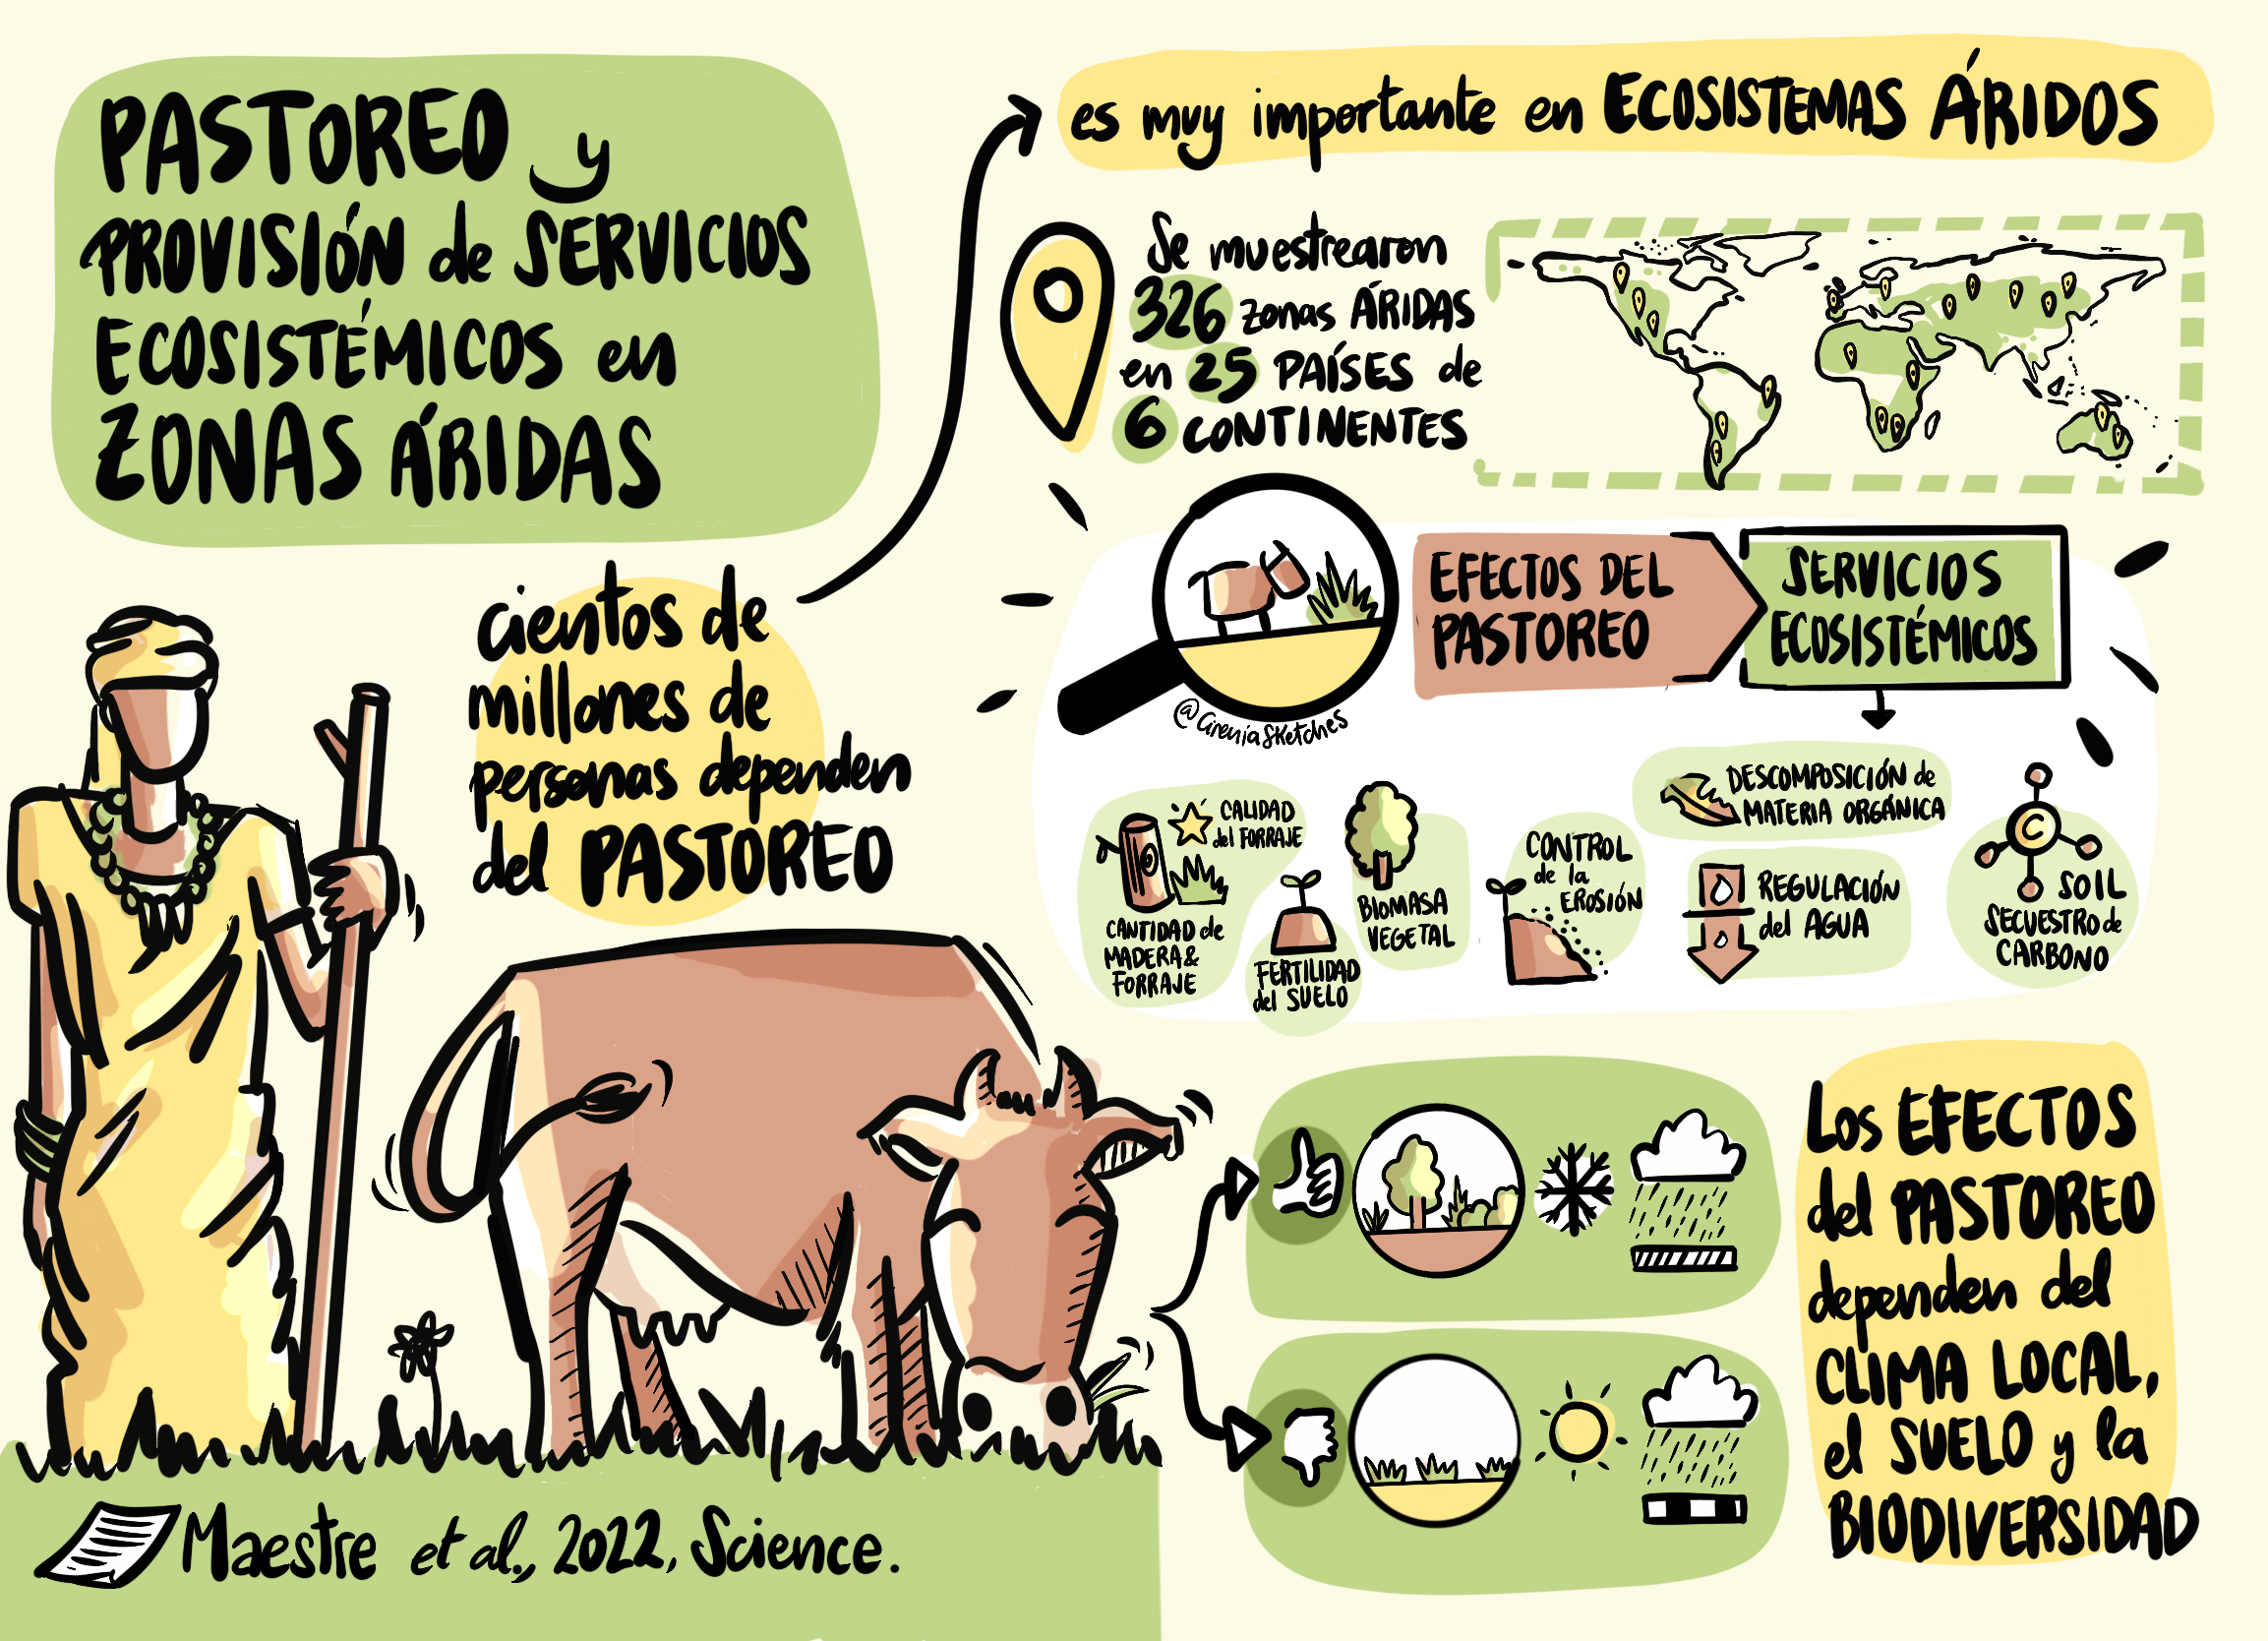 PASTOREO y
PROVISIÓN de SERVICIOS
ECOSISTÉMICOS en
ZONAS ÁRIDAS
es muy importante en ECOSISTEMAS ÁRIDOS
Se muestrearon
326 zonas ÁRIDAS
en 25 PAÍSES de
6 CONTINENTES
cientos de
millones de
personas dependen
del PASTOREO
EFECTOS DEL
PASTOREO
SERVICIOS
ECOSISTÉMICOS
@CireniaSketches
CALIDAD
del FORRAJE
CANTIDAD de
MADERA &
FORRAJE
FERTILIDAD
del SUELO
BIOMASA
VEGETAL
CONTROL
de la
EROSIÓN
DESCOMPOSICIÓN de
MATERIA ORGÁNICA
REGULACIÓN
del AGUA
C
SOIL
SECUESTRO de
CARBONO
Los EFECTOS
del PASTOREO
dependen del
CLIMA LOCAL,
el SUELO y la
BIODIVERSIDAD
Maestre et al., 2022, Science.